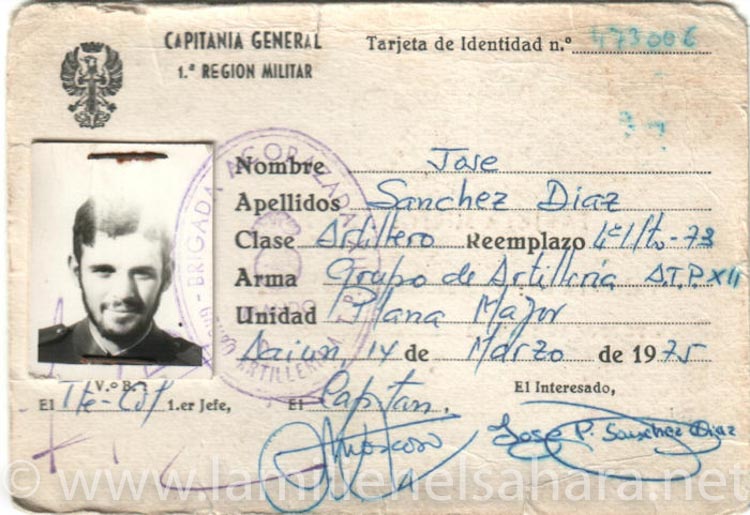 CAPITANIA GENERAL
1.ª REGION MILITAR
Tarjeta de Identidad n.º 473006
Nombre Jose
Apellidos Sanchez Diaz
Clase Artillero Reemplazo 4º l/to-73
Arma Grupo de Artilleria A.T.P. XII
Unidad Plana Mayor
Aaiun, 14 de Marzo de 1975
V.º B.º
El Tte-Col 1.er Jefe,
El Capitan.
El Interesado,
Moscoso
Jose P. Sanchez Diaz
BRIGADA ACORAZADA
ARTILLERIA A.T.P. XII
© www.lamilienelsahara.net